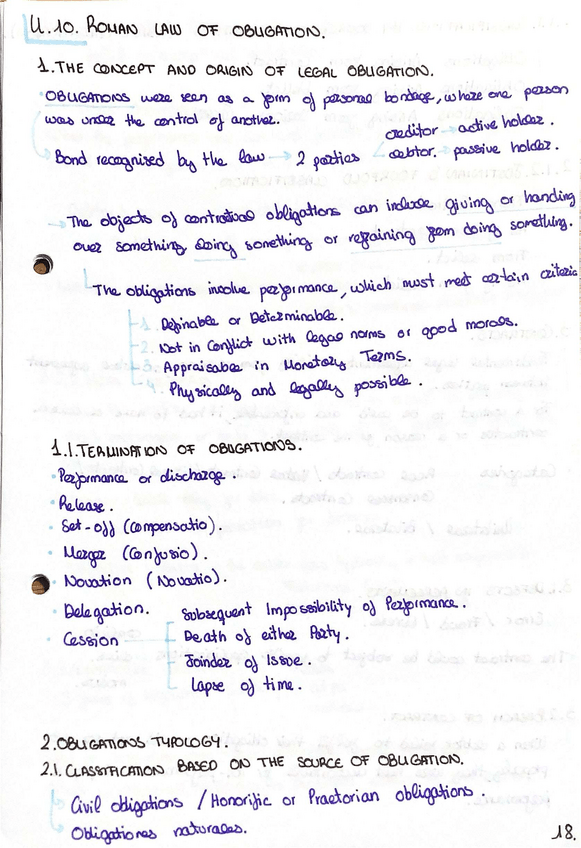 U.10. ROMAN LAW OF OBLIGATION.
1. THE CONCEPT AND ORIGIN OF LEGAL OBLIGATION.
OBLIGATIONS were seen as a form of personal bondage, where one person
was under the control of another.
creditor → active holder.
Bond recognized by the law → 2 parties
debtor. → passive holder.
→ The objects of contractual obligations can include giving or handing
over something, doing something or refraining from doing something.
The obligations involve performance, which must meet certain criteria
1. Definable or Determinable.
2. Not in Conflict with legal norms or good morals.
3. Appraisable in Monetary Terms.
4. Physically and legally possible.
1.1. TERMINATION OF OBLIGATIONS.
• Performance or discharge.
• Release.
• Set-off (Compensatio).
• Merger (Confusio).
• Novation (Novatio).
• Delegation. Subsequent Impossibility of Performance.
• Cession Death of either Party.
Joinder of Issue.
Lapse of time.
2. OBLIGATIONS TYPOLOGY.
2.1. CLASSIFICATION BASED ON THE SOURCE OF OBLIGATION.
Civil obligations / Honorific or Praetorian obligations.
Obligationes naturales.
18.